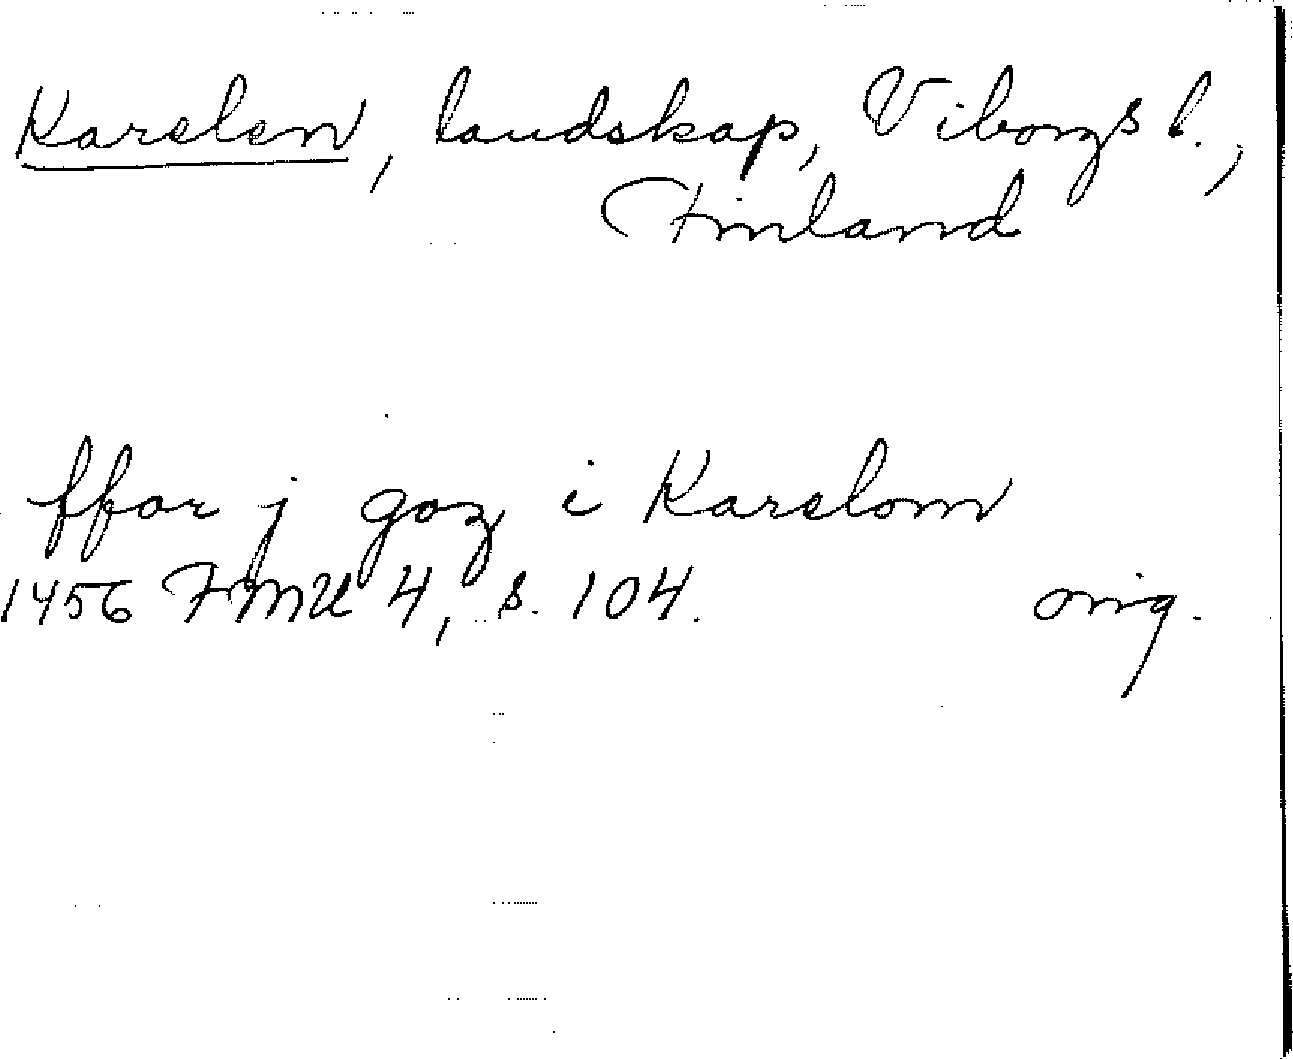 Karelen, landskap, Viborgs l.,
Finland
ffor j goz i Karelom
1456 FMU 4, s. 104. orig.